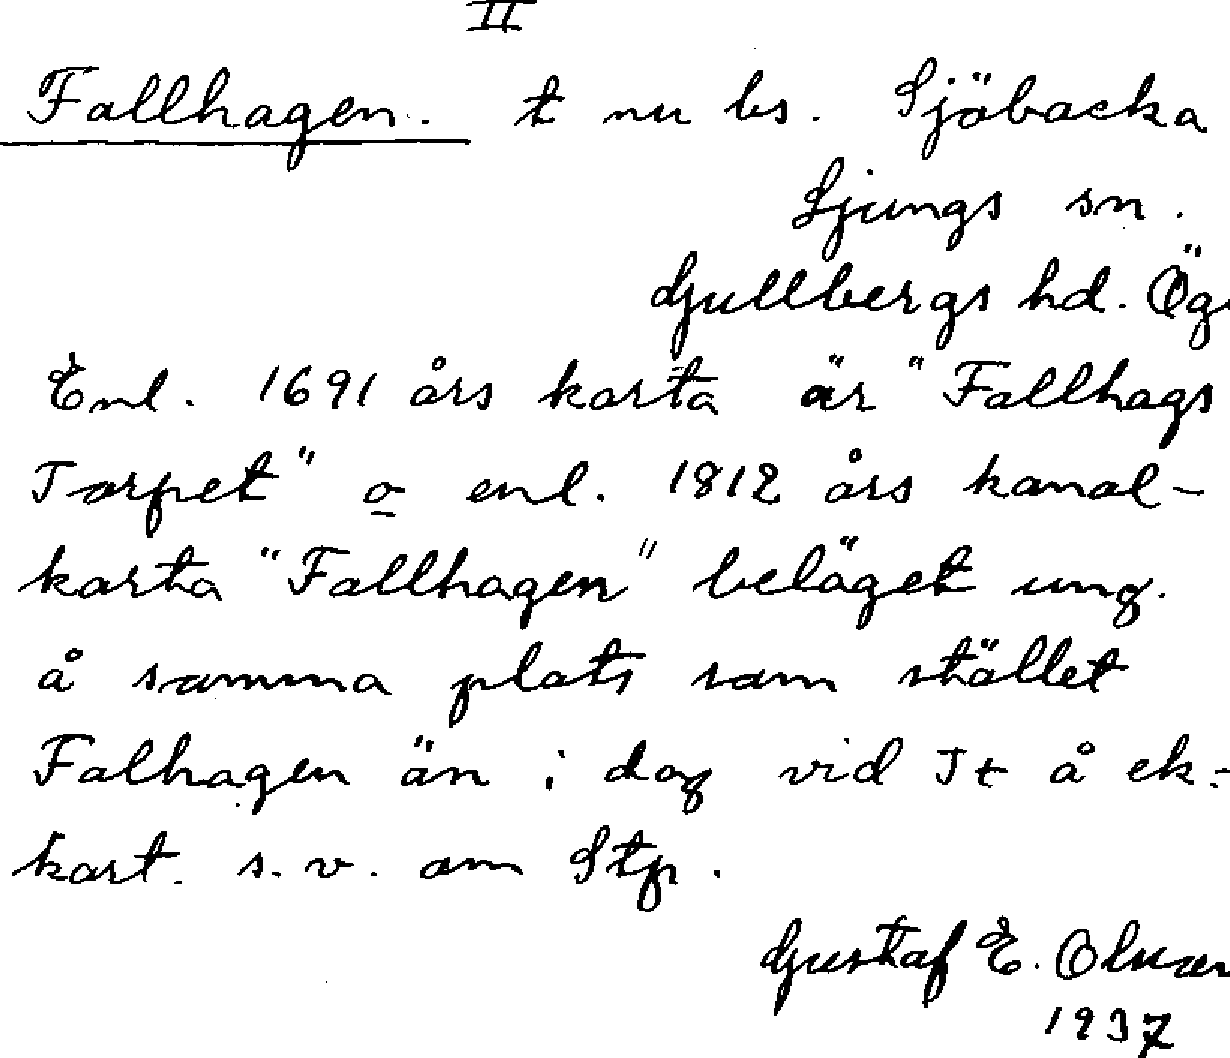 II
Fallhagen. t nu bs. Sjöbacka
Ljungs sn.
Gullbergs hd. Ög.
Enl. 1691 års karta är "Fallhags
Torpet" o enl. 1812 års kanal-
karta "Fallhagen" beläget ung.
å samma plats som stället
Falhagen än i dag vid Jt å ek:
kart. s.v. om Stp.
Gustaf E. Olsson
1937